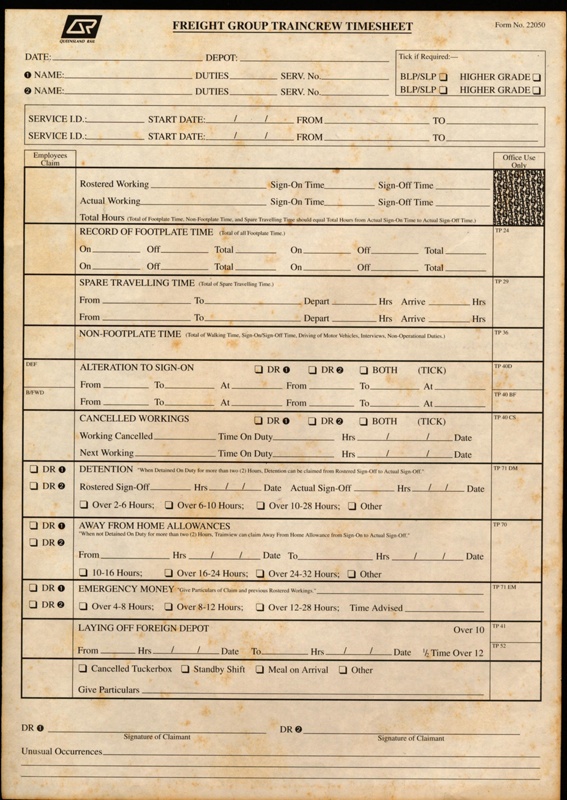 QR
QUEENSLAND RAIL
FREIGHT GROUP TRAINCREW TIMESHEET
Form No. 22050
DATE: DEPOT: Tick if Required:—
❶ NAME: DUTIES SERV. No. BLP/SLP ❏ HIGHER GRADE ❏
❷ NAME: DUTIES SERV. No. BLP/SLP ❏ HIGHER GRADE ❏
SERVICE I.D.: START DATE: / / FROM TO
SERVICE I.D.: START DATE: / / FROM TO
Employees Claim
Office Use Only
Rostered Working Sign-On Time Sign-Off Time
Actual Working Sign-On Time Sign-Off Time
Total Hours (Total of Footplate Time, Non Footplate Time, and Spare Travelling Time should equal Total Hours from Actual Sign-On Time to Actual Sign-Off Time.)
RECORD OF FOOTPLATE TIME (Total of all Footplate Time.) TP 24
On Off Total On Off Total
On Off Total On Off Total
SPARE TRAVELLING TIME (Total of Spare Travelling Time.) TP 29
From To Depart Hrs Arrive Hrs
From To Depart Hrs Arrive Hrs
NON-FOOTPLATE TIME (Total of Walking Time, Sign-On/Sign-Off Time, Driving of Motor Vehicles, Interviews, Non-Operational Duties.) TP 36
DEF ALTERATION TO SIGN-ON ❏ DR ❶ ❏ DR ❷ ❏ BOTH (TICK) TP 40D
From To At From To At
B/FWD TP 40 BF
From To At From To At
CANCELLED WORKINGS ❏ DR ❶ ❏ DR ❷ ❏ BOTH (TICK) TP 40 CS
Working Cancelled Time On Duty Hrs / / Date
Next Working Time On Duty Hrs / / Date
❏ DR ❶ DETENTION "When Detained On Duty for more than two (2) Hours, Detention can be claimed from Rostered Sign-Off to Actual Sign-Off." TP 71 DM
❏ DR ❷ Rostered Sign-Off Hrs / / Date Actual Sign-Off Hrs / / Date
❏ Over 2-6 Hours; ❏ Over 6-10 Hours; ❏ Over 10-28 Hours; ❏ Other
❏ DR ❶ AWAY FROM HOME ALLOWANCES TP 70
"When not Detained On Duty for more than two (2) Hours, Traincrew can claim Away From Home Allowance from Sign-On to Actual Sign-Off."
❏ DR ❷
From Hrs / / Date To Hrs / / Date
❏ 10-16 Hours; ❏ Over 16-24 Hours; ❏ Over 24-32 Hours; ❏ Other
❏ DR ❶ EMERGENCY MONEY "Give Particulars of Claim and previous Rostered Workings." TP 71 EM
❏ DR ❷ ❏ Over 4-8 Hours; ❏ Over 8-12 Hours; ❏ Over 12-28 Hours; Time Advised
LAYING OFF FOREIGN DEPOT Over 10 TP 41
TP 52
From Hrs / / Date To Hrs / / Date ½ Time Over 12
❏ Cancelled Tuckerbox ❏ Standby Shift ❏ Meal on Arrival ❏ Other
Give Particulars
DR ❶ DR ❷
Signature of Claimant Signature of Claimant
Unusual Occurrences